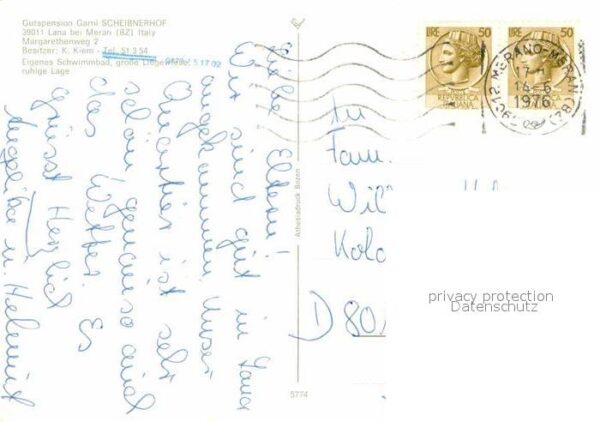 Gutspension Garni SCHEIBNERHOF
39011 Lana bei Meran (BZ) Italy
Margarethenweg 2
Besitzer: K. Kiem - Tel. 51 3 54
5 17 02
Eigenes Schwimmbad, große Liegewiese,
ruhige Lage
Liebe Eltern!
Wir sind gut in Lana
angekommen. Unser
Quartier ist sehr
schön, genauso auch
das Wetter. Es
grüsst Herzlich
u. Helmut
Athesiadruck Bozen
5774
LIRE 50
LIRE 50
MERANO-MERAN
1976
An
Fam.
D 80
privacy protection
Datenschutz